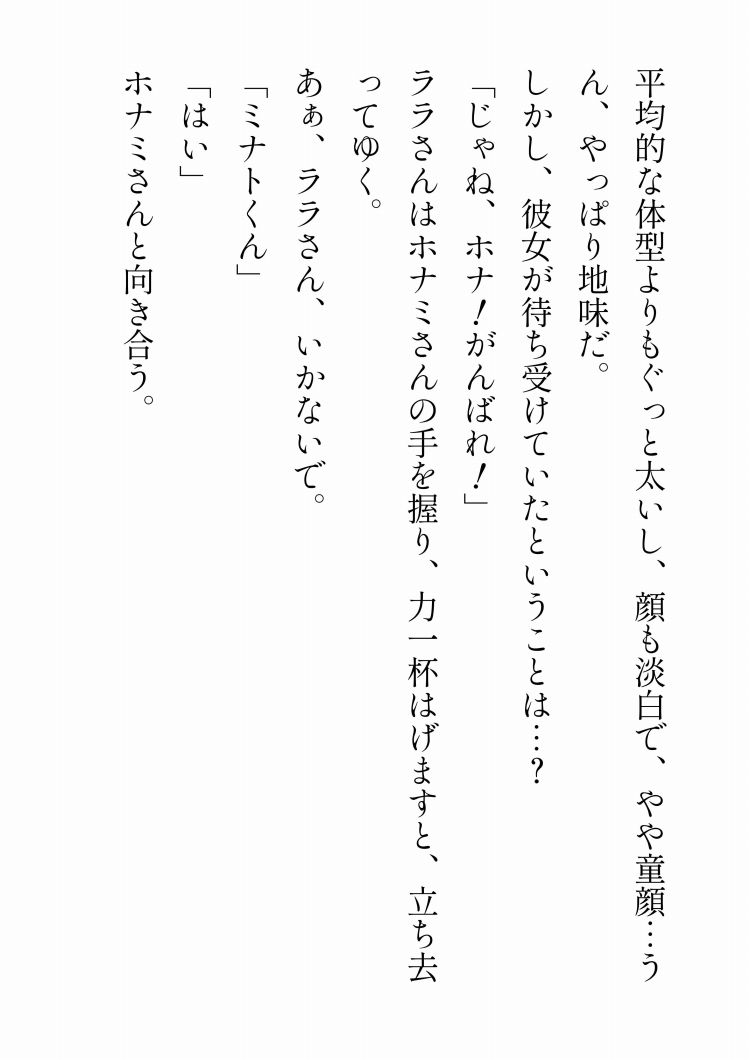 平均的な体型よりもぐっと太いし、顔も淡白で、やや童顔…う
ん、やっぱり地味だ。
しかし、彼女が待ち受けていたということは…？
「じゃね、ホナ！がんばれ！」
ララさんはホナミさんの手を握り、力一杯はげますと、立ち去
ってゆく。
あぁ、ララさん、いかないで。
「ミナトくん」
「はい」
ホナミさんと向き合う。